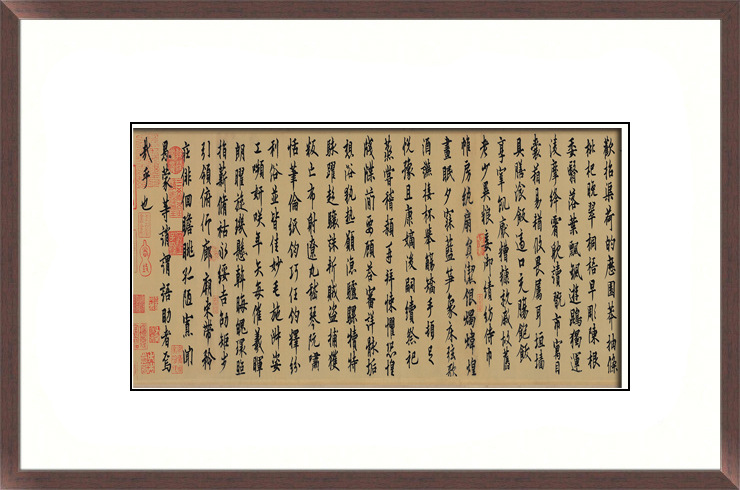 歡招渠荷的歷園莽抽條
枇杷晚翠梧桐早彫陳根
委翳落葉飄颻遊鵾獨運
凌摩絳霄耽讀翫市寓目
囊箱易輶攸畏屬耳垣墻
具膳飡飯適口充腸飽飫
享宰飢厭糟糠親戚故舊
老少異粮妾御績紡侍巾
帷房紈扇圓潔銀燭煒煌
晝眠夕寐藍笋象床弦歌
酒讌接杯舉觴矯手頓足
悅豫且康嫡後嗣續祭祀
蒸嘗稽顙再拜悚懼恐惶
牋牒簡要顧答審詳骸垢
想浴執熱願涼驢騾犢特
駭躍超驤誅斬賊盜捕獲
叛亡布射遼丸嵇琴阮嘯
恬筆倫紙鈞巧任釣釋紛
利俗並皆佳妙毛施淑姿
工嚬妍咲年矢每催曦暉
朗曜旋璣懸斡晦魄環照
指薪脩祜永綏吉劭矩步
引領俯仰廊廟束帶矜
莊徘徊瞻眺孤陋寡聞
愚蒙等誚謂語助者焉
哉乎也